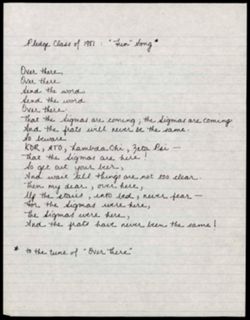 Pledge Class of 1981: "Fun" Song*
Over there,
Over there
Send the word
Send the word
Over there
That the Sigmas are coming; the Sigmas are coming
And the frats will never be the same.
So beware
KDR, ATO, Lambda Chi, Zeta Psi —
That the Sigmas are here!
So get out your beer,
And wait till things are not too clear.
Then my dear, over here,
Up the stairs, into bed, never fear —
For the Sigmas were here,
The Sigmas were here,
And the frats have never been the same!
* to the tune of "Over There"